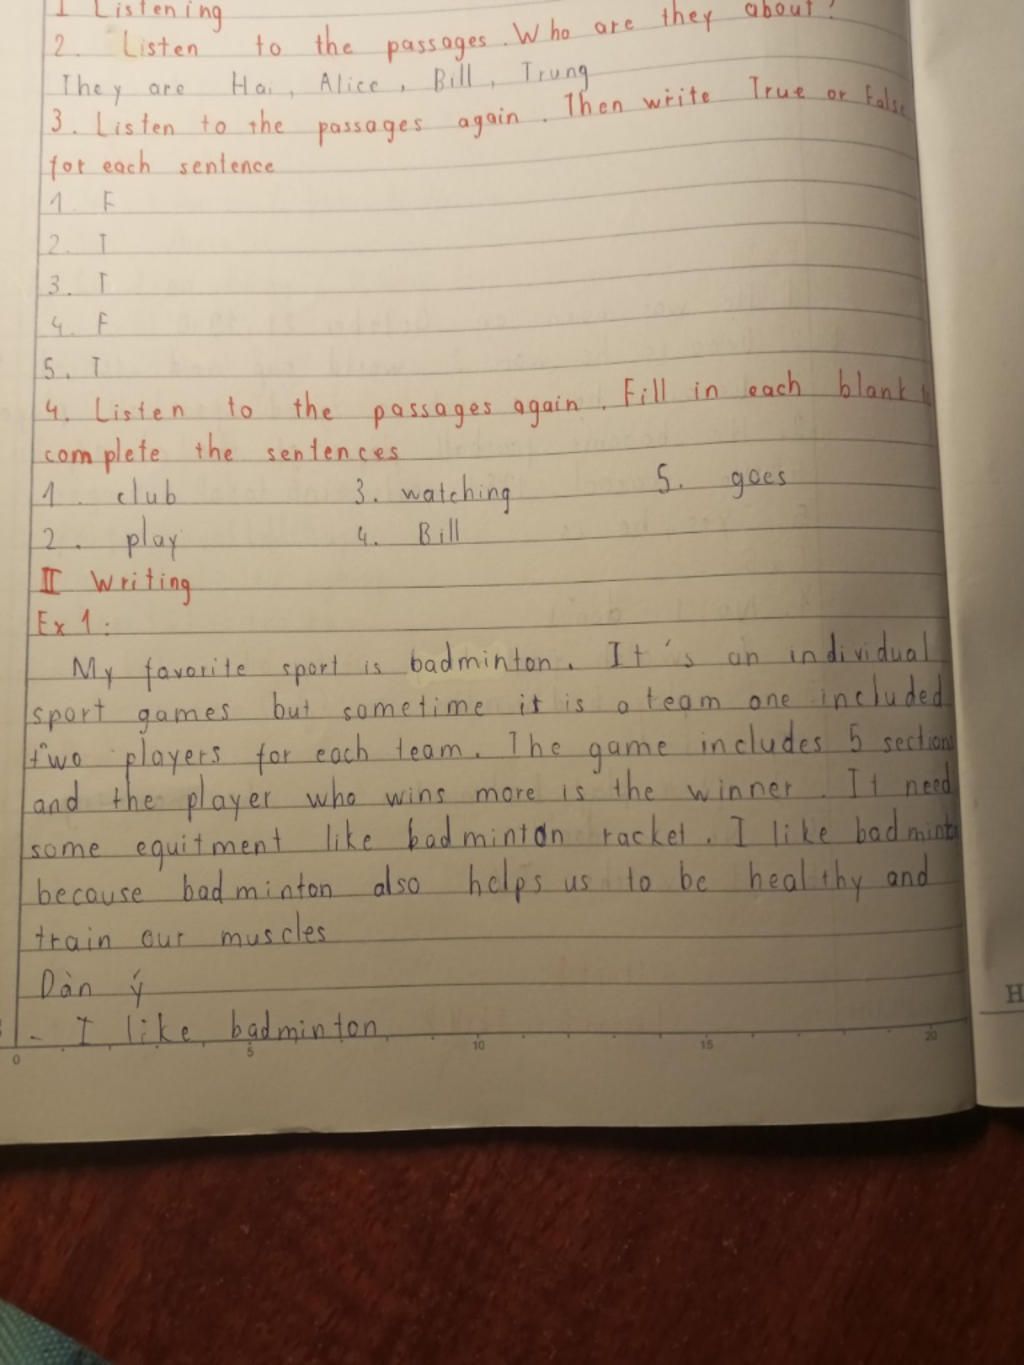 I Listening
2. Listen to the passages. Who are they about?
They are Hai, Alice, Bill, Trung
3. Listen to the passages again. Then write True or False
for each sentence
1. F
2. T
3. T
4. F
5. T
4. Listen to the passages again. Fill in each blank
complete the sentences
1. club 3. watching 5. goes
2. play 4. Bill
II Writing
Ex 1:
My favorite sport is badminton. It's an individual
sport games but sometime it is a team one included
two players for each team. The game includes 5 section
and the player who wins more is the winner. It need
some equitment like badminton racket. I like badminton
because badminton also helps us to be healthy and
train our muscles
Dàn ý
- I like badminton
0 5 10 15 20
H